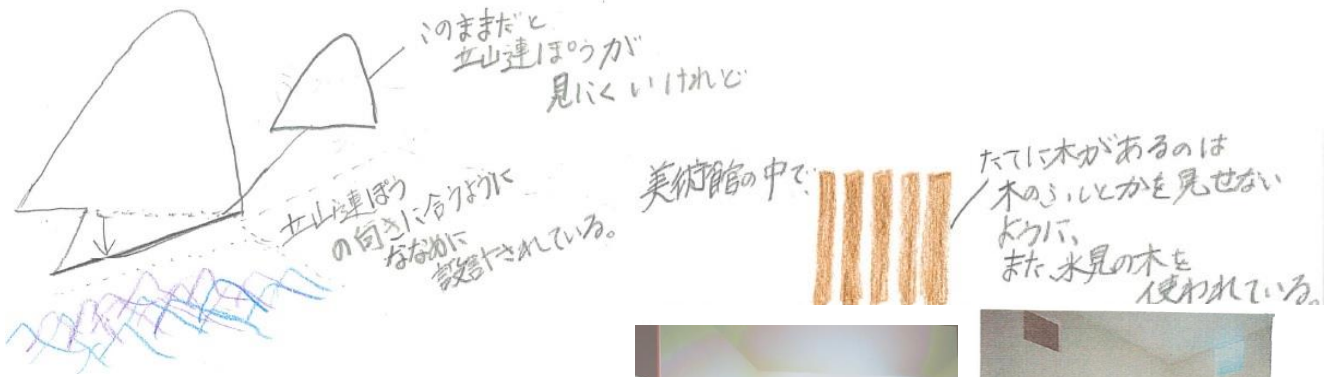 このままだと
立山連ぽうが
見にくいけれど
立山連ぽう
の向きに合うように
ななめに
設計されている。
美術館の中で、
たてに木があるのは
木のふしとかを見せない
ように、
また、氷見の木を
使われている。